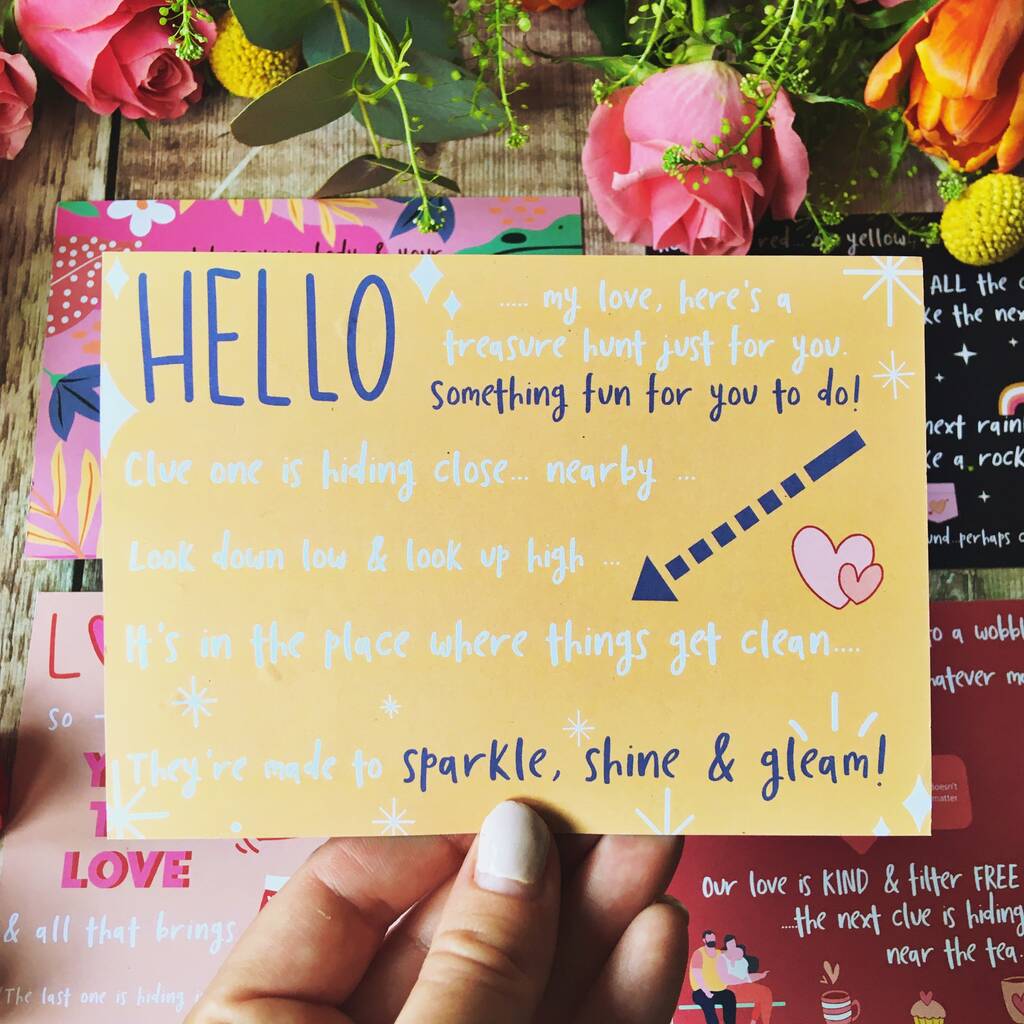 HELLO
..... my love, here's a
treasure hunt just for you.
Something fun for you to do!
Clue one is hiding close... nearby ...
Look down low & look up high ...
It's in the place where things get clean....
They're made to sparkle, shine & gleam!
body & your
red... or yellow...
ALL the
the
next
a rock
perhaps
to a
whatever
doesn't
matter
Our love is KIND & filter FREE
....the next clue is hiding
near the tea.
so
LOVE
& all that brings
The last one is hiding